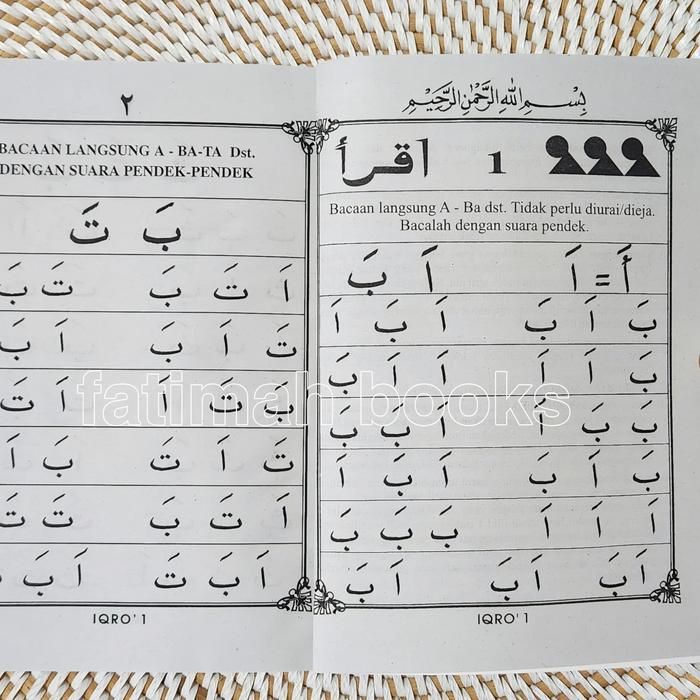 بِسْمِ اللهِ الرَّحْمٰنِ الرَّحِيْمِ
اقرأ 1
Bacaan langsung A - Ba dst. Tidak perlu diurai/dieja.
Bacalah dengan suara pendek.
أَ = اَ اَ بَ
بَ اَ بَ اَ بَ اَ
بَ اَ اَ اَ اَ بَ
بَ بَ اَ اَ بَ بَ
بَ اَ بَ اَ بَ اَ
اَ اَ اَ بَ بَ بَ
اَ بَ اَ بَ اَ بَ
IQRO' 1
٢
BACAAN LANGSUNG A - BA-TA Dst.
DENGAN SUARA PENDEK-PENDEK
بَ تَ
اَ تَ بَ تَ بَ
تَ اَ بَ اَ بَ
بَ تَ اَ اَ تَ
تَ اَ تَ بَ اَ
اَ تَ بَ تَ تَ
اَ بَ تَ اَ بَ
IQRO' 1
fatimah books